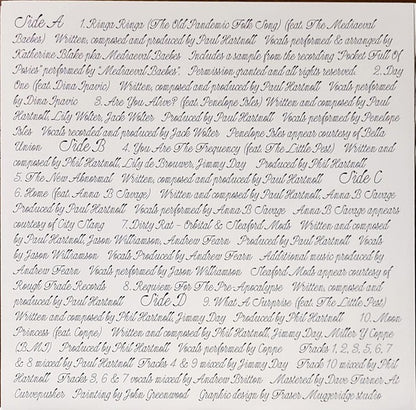 Side A 1. Ringa Ringa (The Old Pandemic Folk Song) (feat. The Mediaeval
Baebes) Written, composed and produced by Paul Hartnoll Vocals performed & arranged by
Katherine Blake pka Mediaeval Baebes Includes a sample from the recording "Pocket Full Of
Posies" performed by "Mediaeval Baebes". Permission granted and all rights reserved. 2. Day
One (feat. Dina Ipavic) Written, composed and produced by Paul Hartnoll Vocals performed
by Dina Ipavic 3. Are You Alive? (feat. Penelope Isles) Written and composed by Paul
Hartnoll, Lily Wolter, Jack Wolter Produced by Paul Hartnoll Vocals performed by Penelope
Isles Vocals recorded and produced by Jack Wolter Penelope Isles appear courtesy of Bella
Union Side B 4. You Are The Frequency (feat. The Little Pest) Written and
composed by Phil Hartnoll, Lily de Brouwer, Jimmy Day Produced by Phil Hartnoll
5. The New Abnormal Written, composed and produced by Paul Hartnoll Side C
6. Home (feat. Anna. B Savage) Written and composed by Paul Hartnoll, Anna B Savage
Produced by Paul Hartnoll Vocals performed by Anna B Savage Anna B Savage appears
courtesy of City Slang 7. Dirty Rat - Orbital & Sleaford Mods Written and composed
by Paul Hartnoll, Jason Williamson, Andrew Fearn Produced by Paul Hartnoll Vocals
by Jason Williamson Vocals Produced by Andrew Fearn Additional music produced by
Andrew Fearn Vocals performed by Jason Williamson Sleaford Mods appear courtesy of
Rough Trade Records 8. Requiem For The Pre Apocalypse Written, composed and
produced by Paul Hartnoll Side D 9. What A Surprise (feat. The Little Pest)
Written and composed by Phil Hartnoll, Jimmy Day Produced by Phil Hartnoll 10. Moon
Princess (feat. Coppe) Written and composed by Phil Hartnoll, Jimmy Day, Miller Y Coppe
(B.M.I) Produced by Phil Hartnoll Vocals performed by Coppe Tracks 1, 2, 3, 5, 6, 7
& 8 mixed by Paul Hartnoll Tracks 4 & 9 mixed by Jimmy Day Track 10 mixed by Phil
Hartnoll Tracks 3, 6 & 7 vocals mixed by Andrew Britton Mastered by Dave Turner At
Curvepusher Painting by John Greenwood Graphic design by Fraser Muggeridge studio